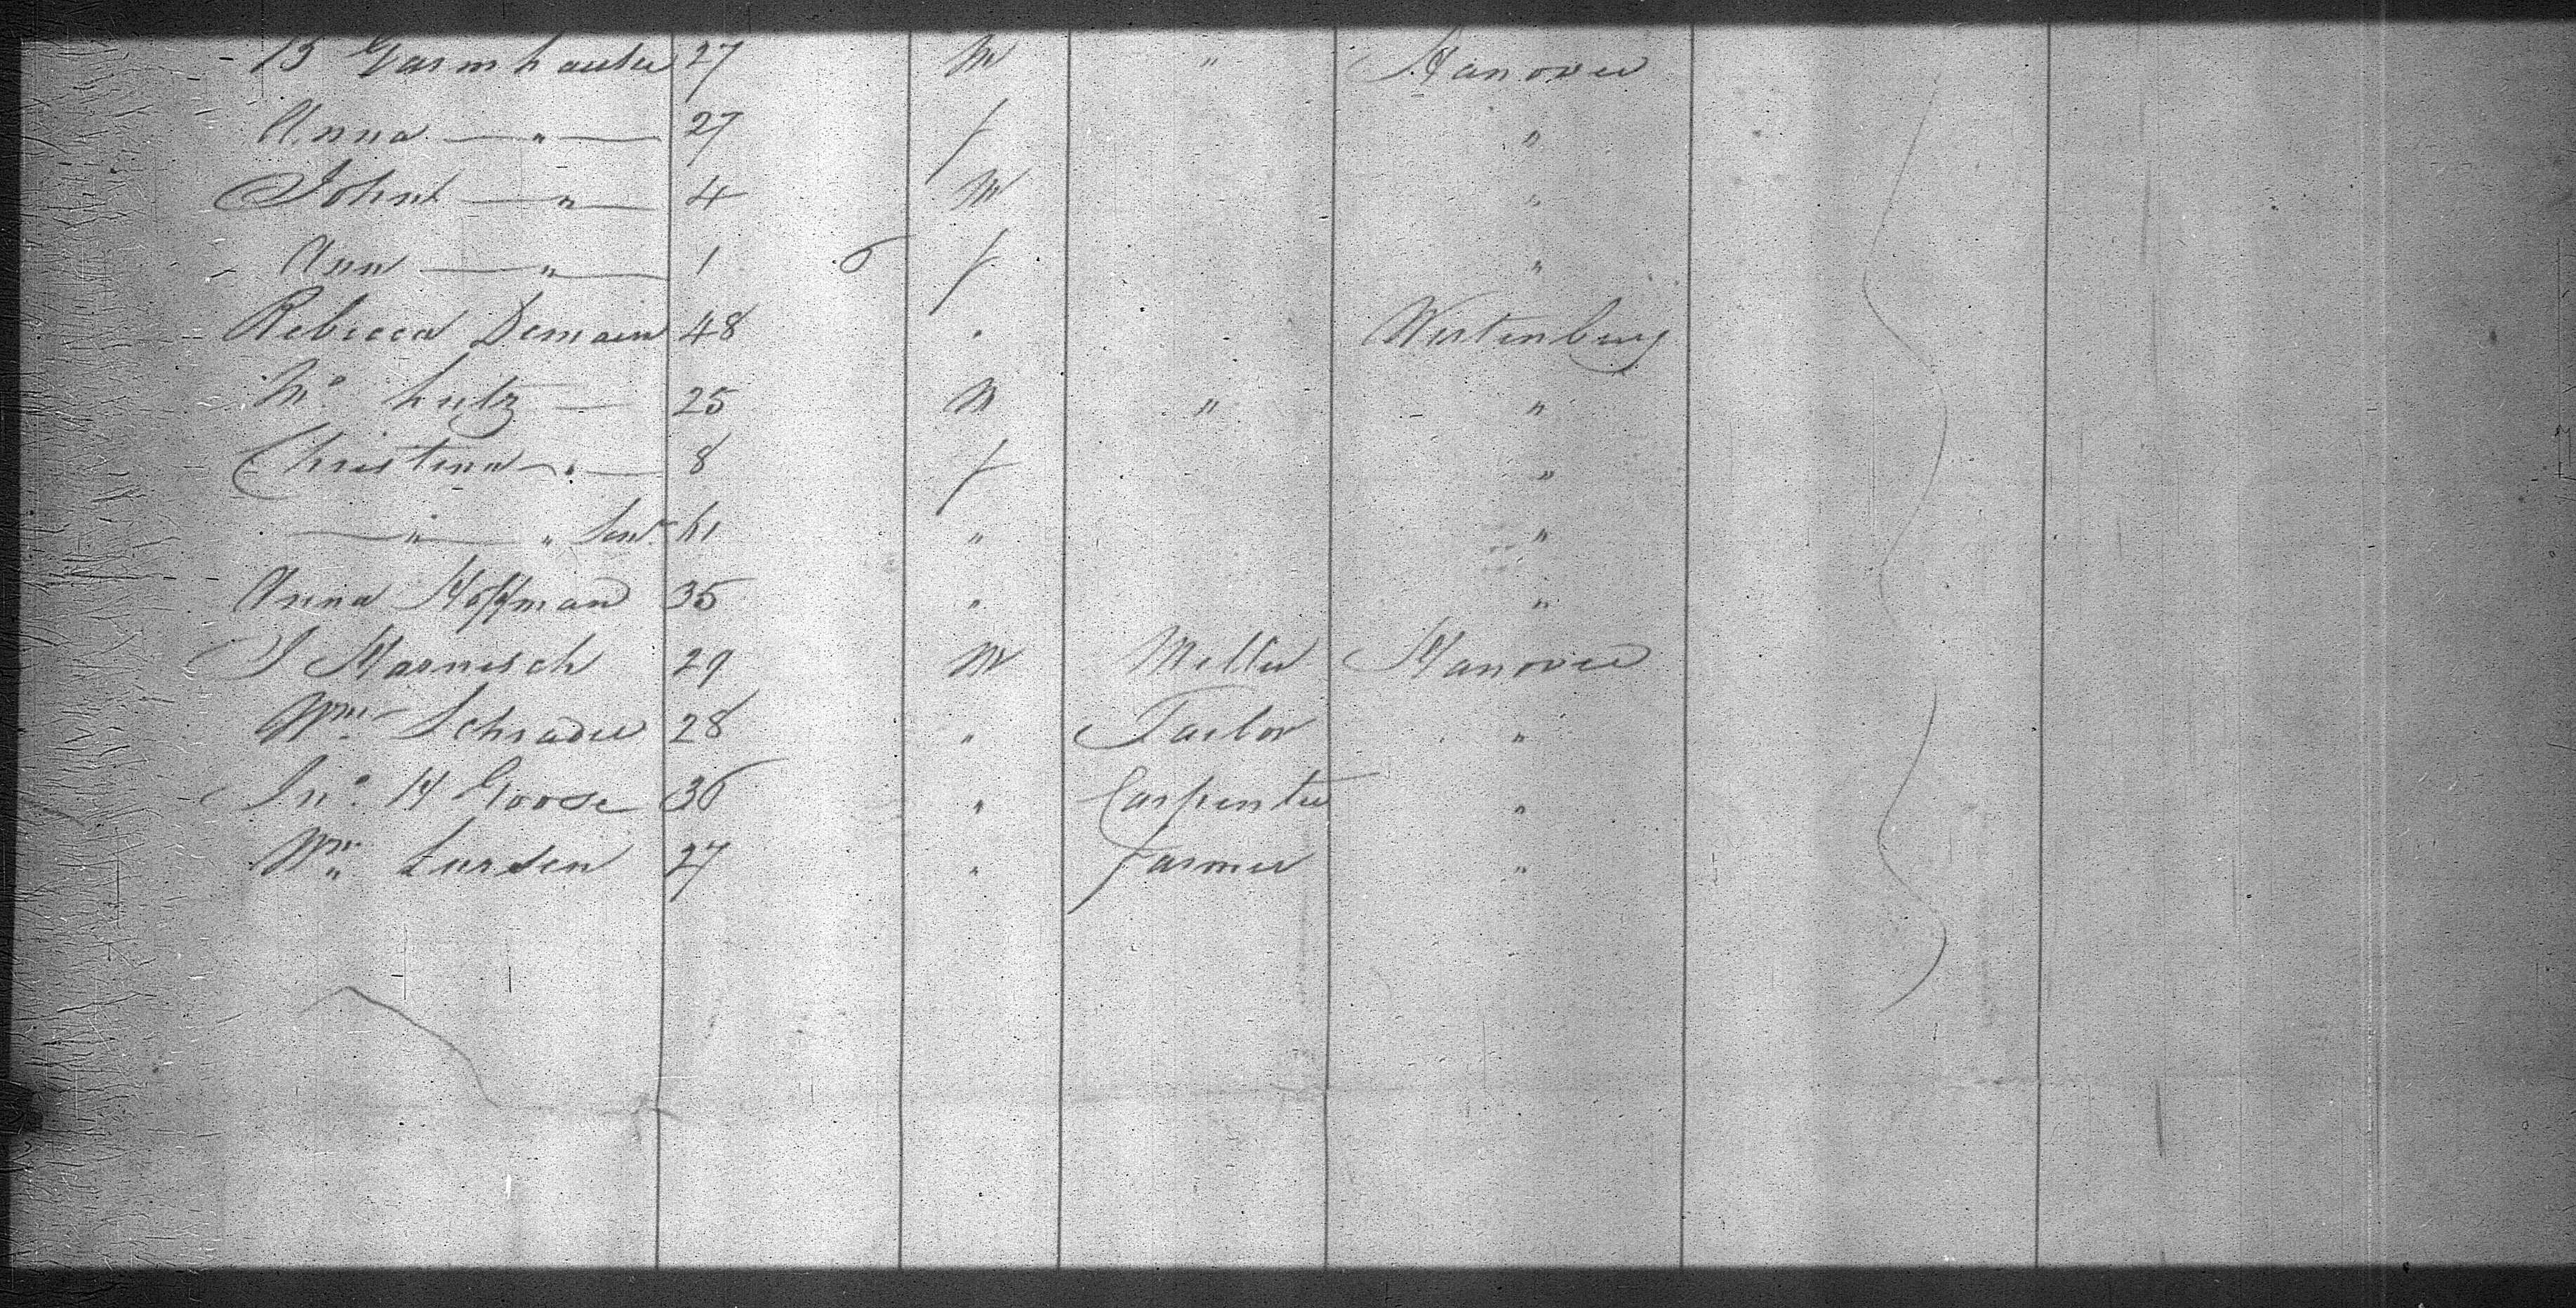 B Garmhauser 27 M " Hanover
Anna — " — 27 f "
John — " — 4 M "
Ann — " — 1 6 f "
Rebecca Demain 48 " Wirtenburg
Mº Lutz — 25 M " "
Christina — " — 8 f "
— " — " Senr 61 " "
Anna Hoffman 35 " "
J Harnisch 29 M Miller Hanover
Wm Schrader 28 " Tailor "
Jnº H Goose 36 " Carpenter "
Wm Lursen 27 " farmer "